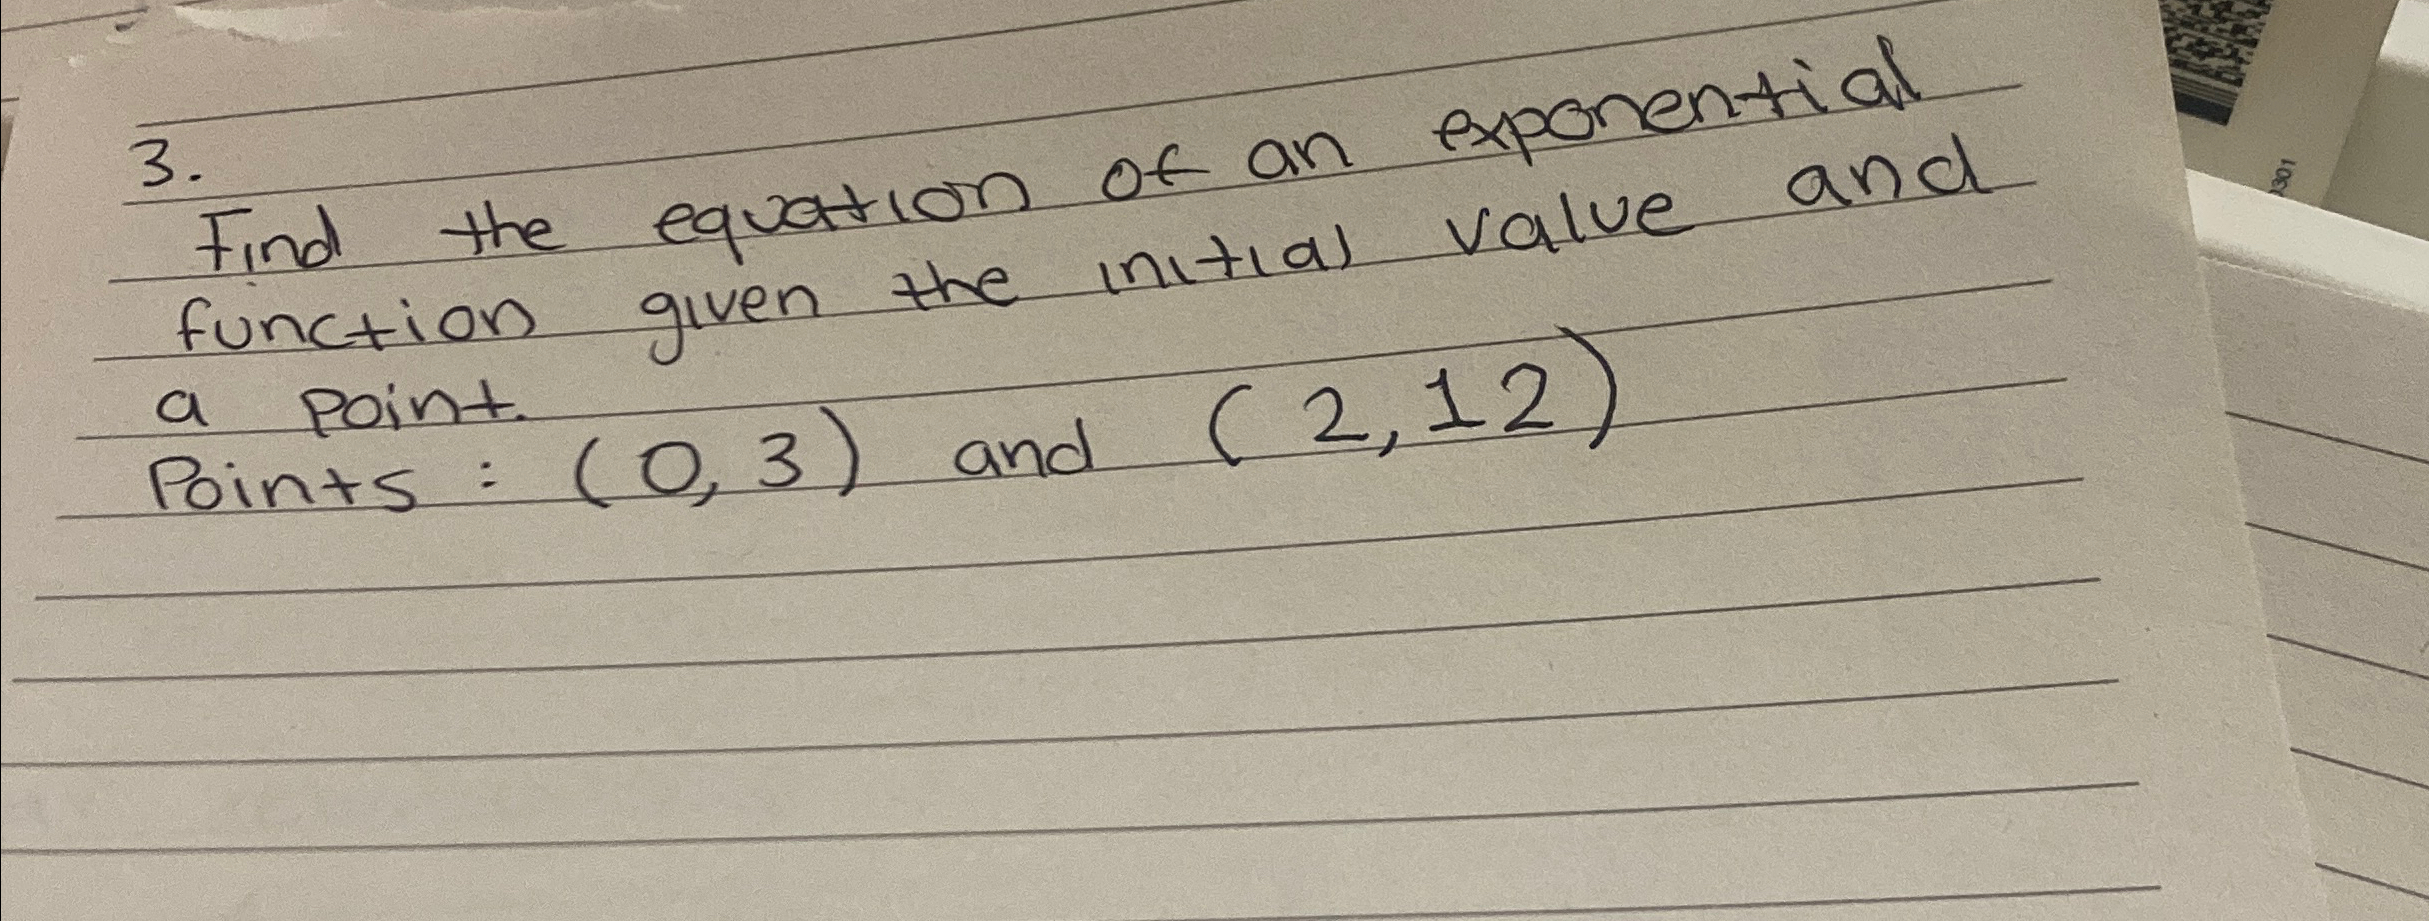 3.
Find the equation of an exponential
function given the initial value and
a point.
Points : (0,3) and (2,12)
1301